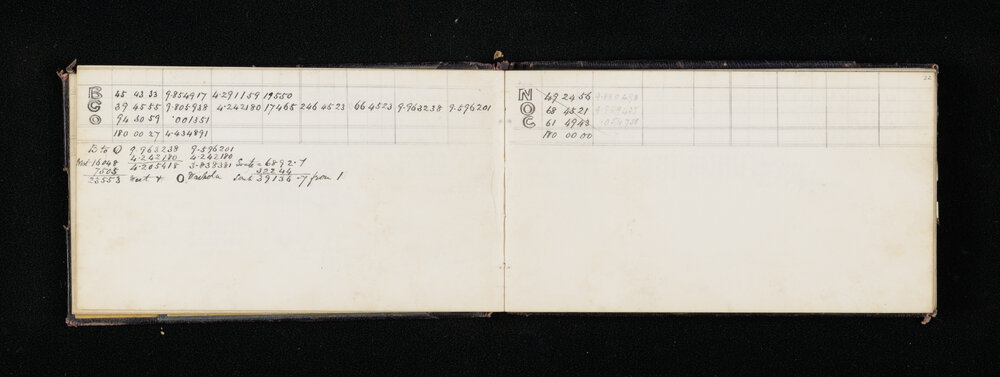 B 45 43 33 9.854917 4.291159 19550
G 39 45 55 9.805938 4.242180 17465 246 45 23 66 45 23 9.963238 9.596201
O 94 30 59 .001351
180 00 27 4.434891
B to O 9.963238 9.596201
4.242180 4.242180
West 16048 4.205418 3.838381 South = 6892.7
7505 32244
23553 West & O South 39136.7 from 1
22
N 49 24 56
O 68 45 21
C 61 49 43
180 00 00